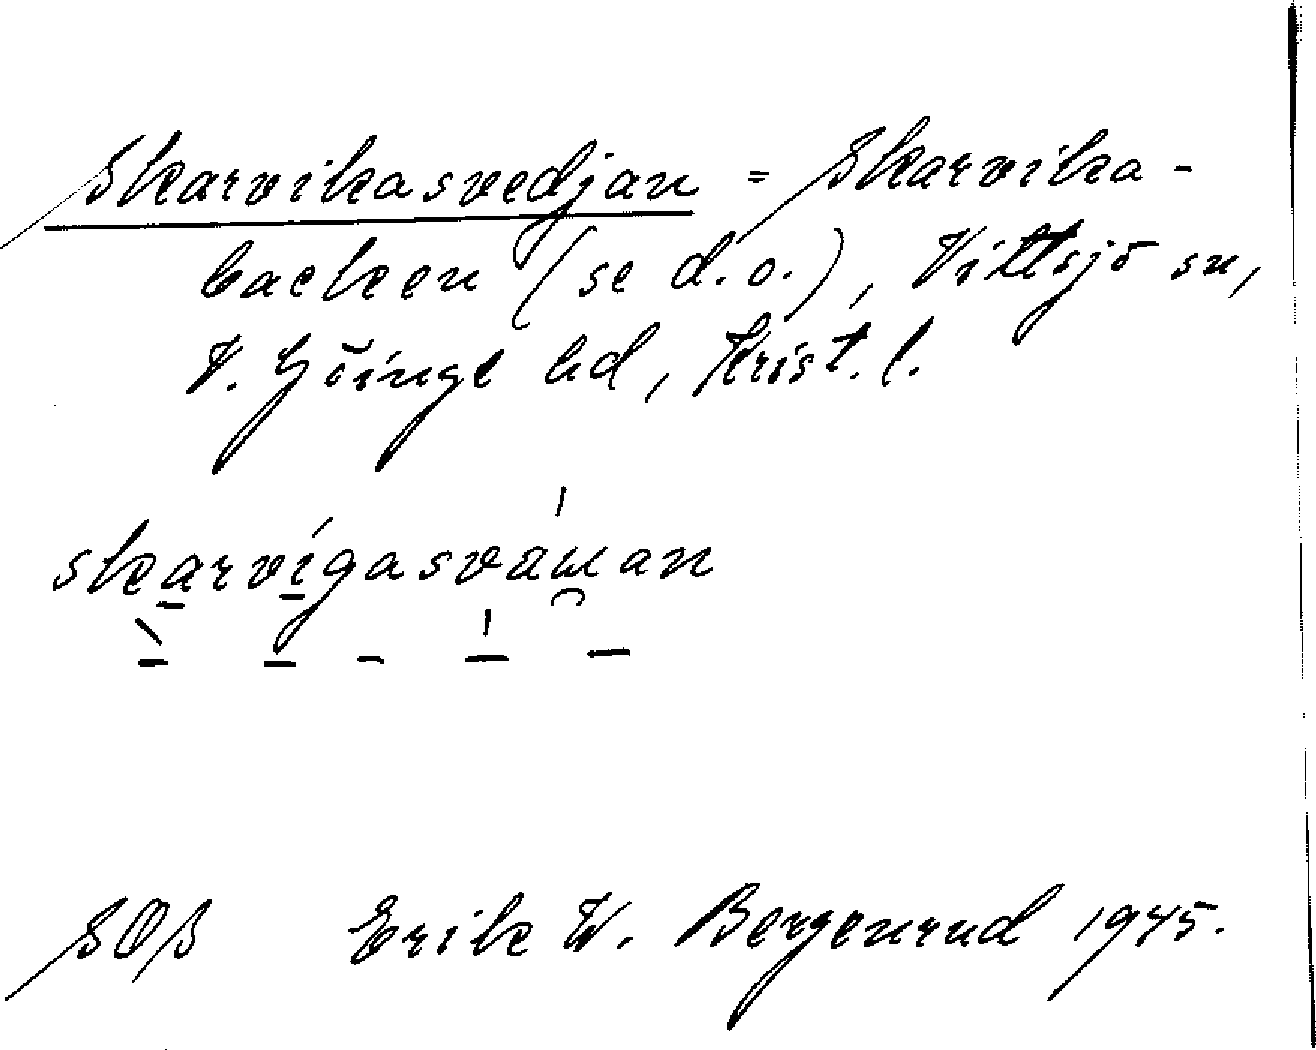 Skarvikasvedjan = Skarvika-
backen (se d.o.), Vittsjö sn,
V. Göinge hd, Krist. l.
SOS Erik W. Bergenrud 1945.